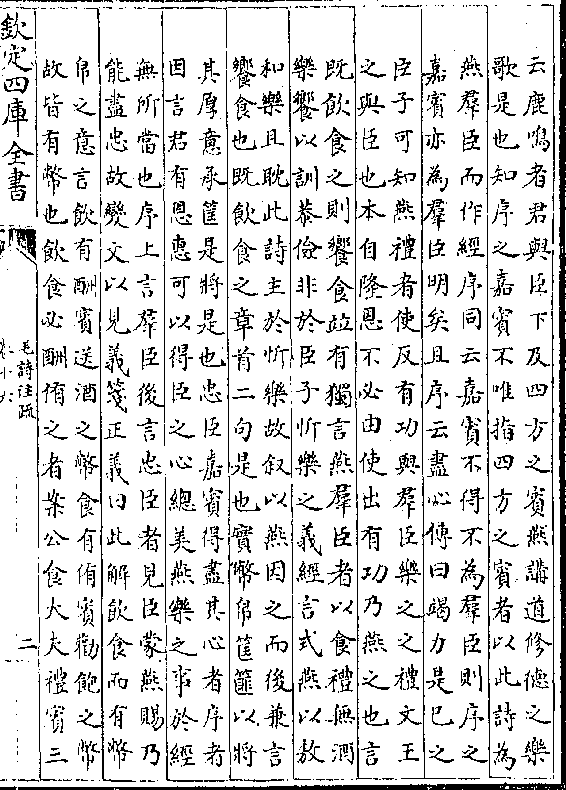 云鹿鳴者君與臣下及四方之賓燕講道修德之樂
歌是也知序之嘉賓不唯指四方之賓者以此詩為
燕羣臣而作經序同云嘉賓不得不為羣臣則序之
嘉賓亦為羣臣明矣且序云盡心傳曰竭力是已之
臣子可知燕禮者使反有功與羣臣樂之之禮文王
之與臣也本自隆恩不必由使出有功乃燕之也言
既飲食之則饗食竝有獨言燕羣臣者以食禮無酒
樂饗以訓恭儉非於臣子忻樂之義經言式燕以敖
和樂且耽此詩主於忻樂故叙以燕因之而後兼言
饗食也既飲食之章首二句是也實幣帛筐篚以將
其厚意承筐是將是也忠臣嘉賓得盡其心者序者
因言君有恩惠可以得臣之心總美燕樂之事於經
無所當也序上言羣臣後言忠臣者見臣蒙燕賜乃
能盡忠故變文以見義箋正義曰此解飲食而有幣
帛之意言飲有酬賓送酒之幣食有侑賓勸飽之幣
故皆有幣也飲食必酬侑之者案公食大夫禮賓三
欽定四庫全書
毛詩注疏
卷十六
二